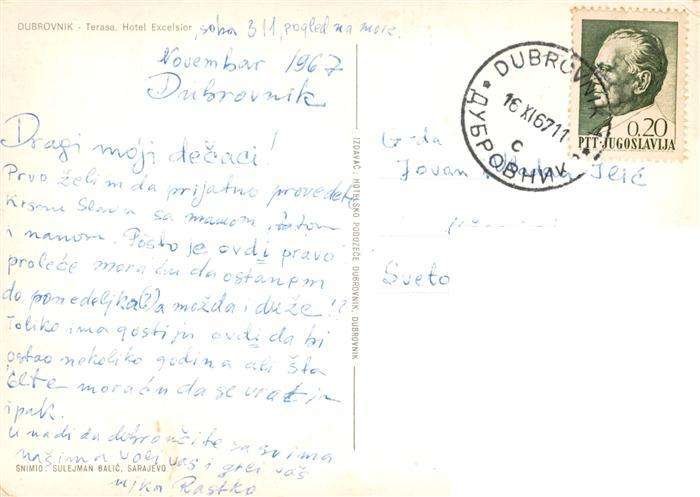 DUBROVNIK - Terasa. Hotel Excelsior, soba 311, pogled na more.
Novembar 1967
Dubrovnik
Dragi moji dečaci!
Prvo želim da prijatno provedete
Krsnu Slavu sa mamom, tatom
i nanom. Pošto je ovdi pravo
proleće moraću da ostanem
do ponedeljka(?) a možda i duže!!
Toliko ima gostiju ovdi da bi
ostao nekoliko godina ali šta
ćete moraću da se vratim
ipak.
U nadi da dobro učite sa svima
našima voli vas i grli vaš
ujka Rastko
SNIMIO: SULEJMAN BALIĆ, SARAJEVO
IZDAVAČ: HOTELSKO PODUZEĆE DUBROVNIK, DUBROVNIK -
DUBROVNIK
16 XI 67 11
C
ДУБРОВНИК
0.20
PTT-JUGOSLAVIJA
Jovan Ilić
Sveto